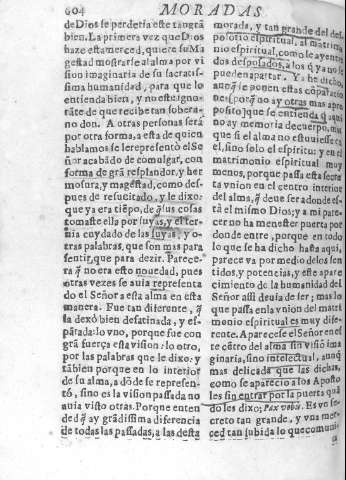 604
MORADAS
de Dios se perderia este tan grã
bien. La primera vez que Dios
haze esta merced, quiere su Ma
gestad mostrarse al alma por vi
sion imaginaria de su sacratis-
sima humanidad, para que lo
entienda bien, y no este igno-
rãte de que recibe tan sobera-
no don. A otras personas será
por otra forma, a esta de quien
hablamos se le representò el Se
ñor acabãdo de comulgar, con
forma de grã resplandor, y her
mosura, y magestad, como des-
pues de resucitado, y le dixo:
que ya era tiẽpo, de q̃ sus cosas
tomasse ella por suyas, y el ter-
nia cuydado de las suyas, y o-
tras palabras, que son mas para
sentir, que para dezir. Parece-
ra q̃ no era esto nouedad, pues
otras vezes se auia representa
do el Señor a esta alma en esta
manera. Fue tan diferente, q̃
la dexò bien desatinada, y es-
pãtada: lo vno, porque fue con
grã fuerça esta vision: lo otro,
por las palabras que le dixo: y
tãbien porque en lo interior
de su alma, a dõde se represen-
tò, sino es la vision passada no
auia visto otras. Porque enten
ded q̃ ay grãdissima diferencia
de todas las passadas, a las desta
morada, y tan grande del des-
posorio espiritual, al matrimo
nio espiritual, como le ay entre
dos desposados, a los q̃ ya no se
pueden apartar. Ya he dicho,
aunq̃ se ponen estas cõparacio
nes (porq̃ no ay otras mas apro
posito) que se entienda q̃ aqui
no ay memoria de cuerpo, mas
que si el alma no estuuiesse en
el, sino solo el espiritu: y en el
matrimonio espiritual muy
menos, porque passa esta secre
ta vnion en el centro interior
del alma, q̃ deue ser adonde es-
tà el mismo Dios; y a mi pare-
cer no ha menester puerta por
donde entre, porque en todo
lo que se ha dicho hasta aqui,
parece va por medio de los sen
tidos, y potencias, y este apare
cimiento de la humanidad del
Señor assi deuia de ser; mas lo
que passa en la vnion del matri
monio espiritual es muy dife-
rente. Aparecese el Señor en es
te cẽtro del alma sin visiõ ima
ginaria, sino intelectual, aunq̃
mas delicada que las dichas,
como se apareciò a los Aposto
les sin entrar por la puerta quã
do les dixo; Pax vobis. Es vn se-
creto tan grande, y vna mer-
ced tan subida lo que comuni-